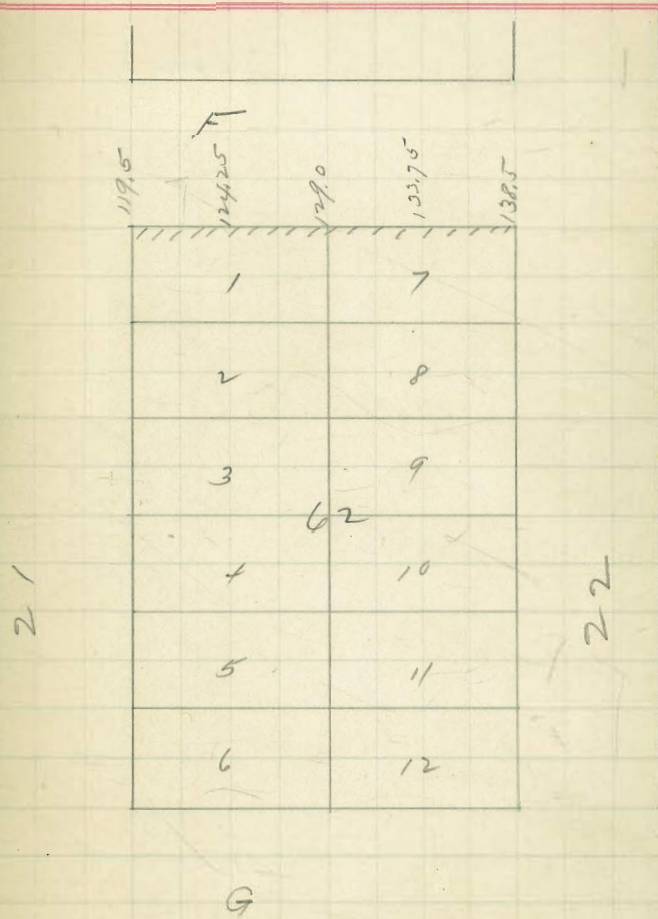 F
119.5 124.25 129.0 133.75 138.5
1 7
2 8
3 9
62
4 10
21 22
5 11
6 12
G